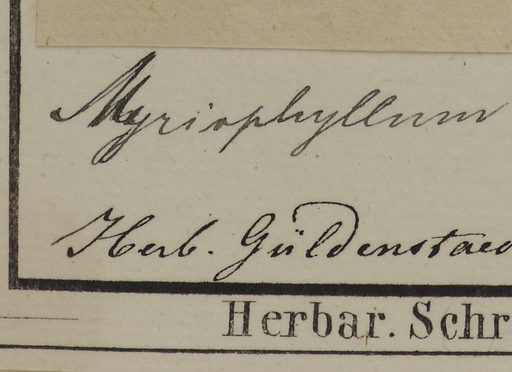 Myriophyllum
Herb. Güldenstaed
Herbar. Schr